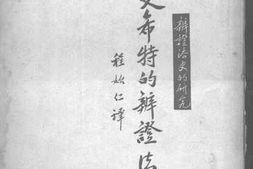 辯證法史的研究
希特的辯證法
程始仁譯